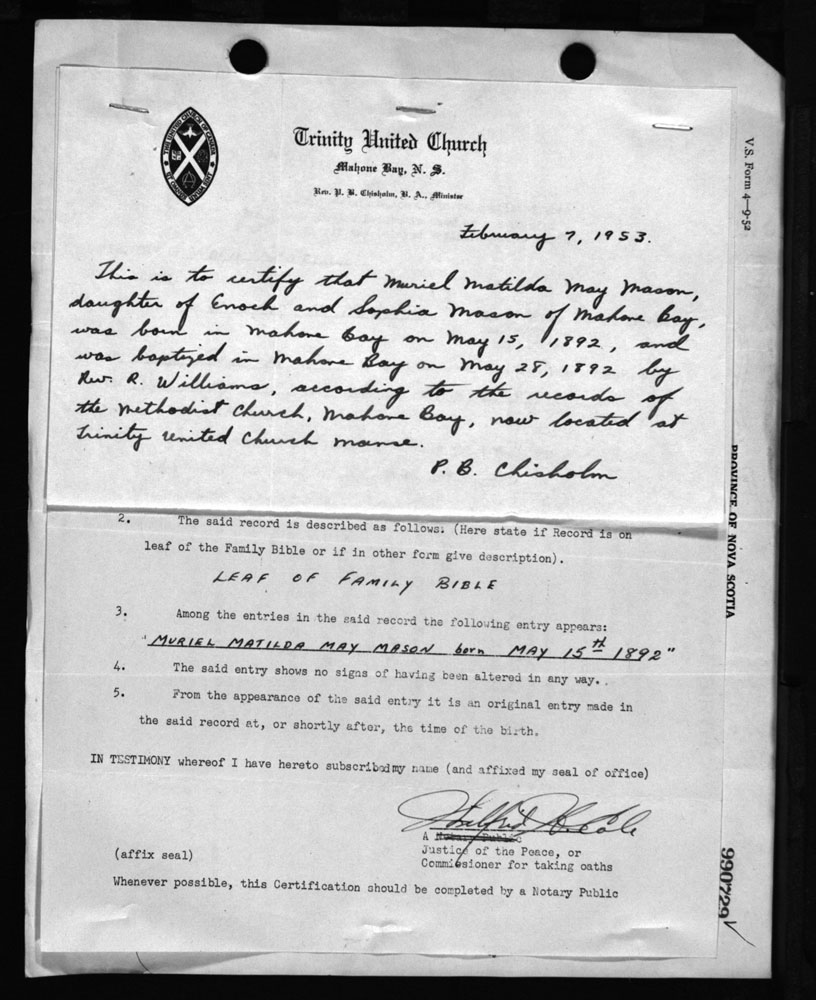 Trinity United Church
Mahone Bay, N. S.
Rev. P. B. Chisholm, B. A., Minister
THE UNITED CHURCH OF CANADA
February 7, 1953.
This is to certify that Muriel Matilda May Mason,
daughter of Enoch and Sophia Mason of Mahone Bay,
was born in Mahone Bay on May 15, 1892, and
was baptized in Mahone Bay on May 28, 1892 by
Rev. R. Williams, according to the records of
the Methodist Church, Mahone Bay, now located at
Trinity United Church manse.
P. B. Chisholm
2. The said record is described as follows: (Here state if Record is on
leaf of the Family Bible or if in other form give description).
LEAF OF FAMILY BIBLE
3. Among the entries in the said record the following entry appears:
"MURIEL MATILDA MAY MASON born MAY 15th 1892"
4. The said entry shows no signs of having been altered in any way.
5. From the appearance of the said entry it is an original entry made in
the said record at, or shortly after, the time of the birth.
IN TESTIMONY whereof I have hereto subscribed my name (and affixed my seal of office)
A Notary Public
Justice of the Peace, or
Commissioner for taking oaths
(affix seal)
Whenever possible, this Certification should be completed by a Notary Public
V.S. Form 4—9-52
PROVINCE OF NOVA SCOTIA
990729